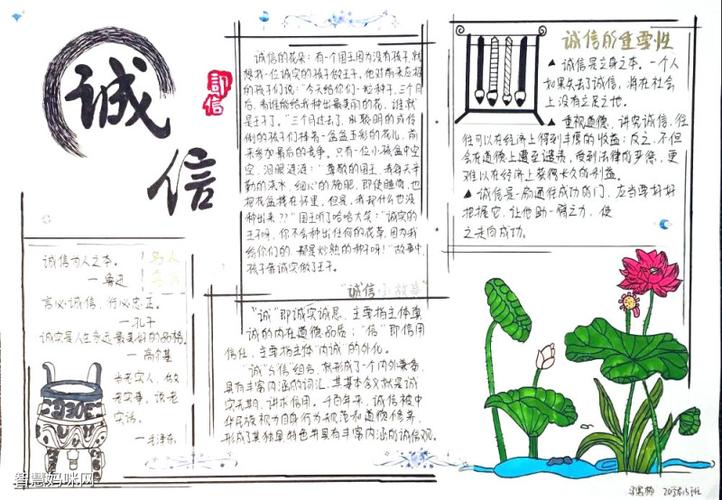 诚
信
诚信
诚信为人之本。
—鲁迅
名人
名言
言必诚信，行必忠正。
—孔子
诚实是人生永远最美好的品格。
—高尔基
当老实人，做
老实事，说老
实话。
—毛泽东
诚信的花朵：有一个国王因为没有孩子，就
想找一位诚实的孩子做王子。他对前来应招
的孩子们说："今天给你们一粒种子，三个月
后，看谁能给我种出最美丽的花，谁就
是王子了。"三个月过去了，
倒的孩子们捧着一盆盆五彩的花儿，前
来参加最后的竞争。只有一位小孩盆中空
空，泪眼涟涟："尊敬的国王，我每天辛
勤的浇水，细心的施肥，即使睡觉，也
把花盆搂在怀里，但是，我却什么也没
种出来??"国王听了哈哈大笑："诚实的
王子呀，你不会种出任何的花草，因为我
给你们的，都是炒熟的种子呀!"故事中，
孩子靠诚实做了王子。
"诚信"小故事
"诚"即诚实诚恳，主要指主体真
诚的内在道德品质；"信"即信用
信任，主要指主体"内诚"的外化。
"诚"与"信"组合，就形成了一个内外兼备，
具有丰富内涵的词汇，其基本含义就是诚
实无欺，讲求信用。千百年来，诚信被中
华民族视为自身行为规范和道德修养，
形成了其独具特色并具有丰富内涵的诚信观。
诚信的重要性
▲ 诚信是立身之本。一个人
如果失去了诚信，将在社会
上没有立足之地。
▲ 重视道德，讲究诚信，往
往可以在经济上得到丰厚的收益；反之，不但
会在道德上遭至谴责，受到法律的严惩，更
难以在经济上获得长久的利益。
▲ 诚信是一扇通往成功的门，应当要好好
把握它，让他助一臂之力，使
之走向成功。
智慧妈咪网